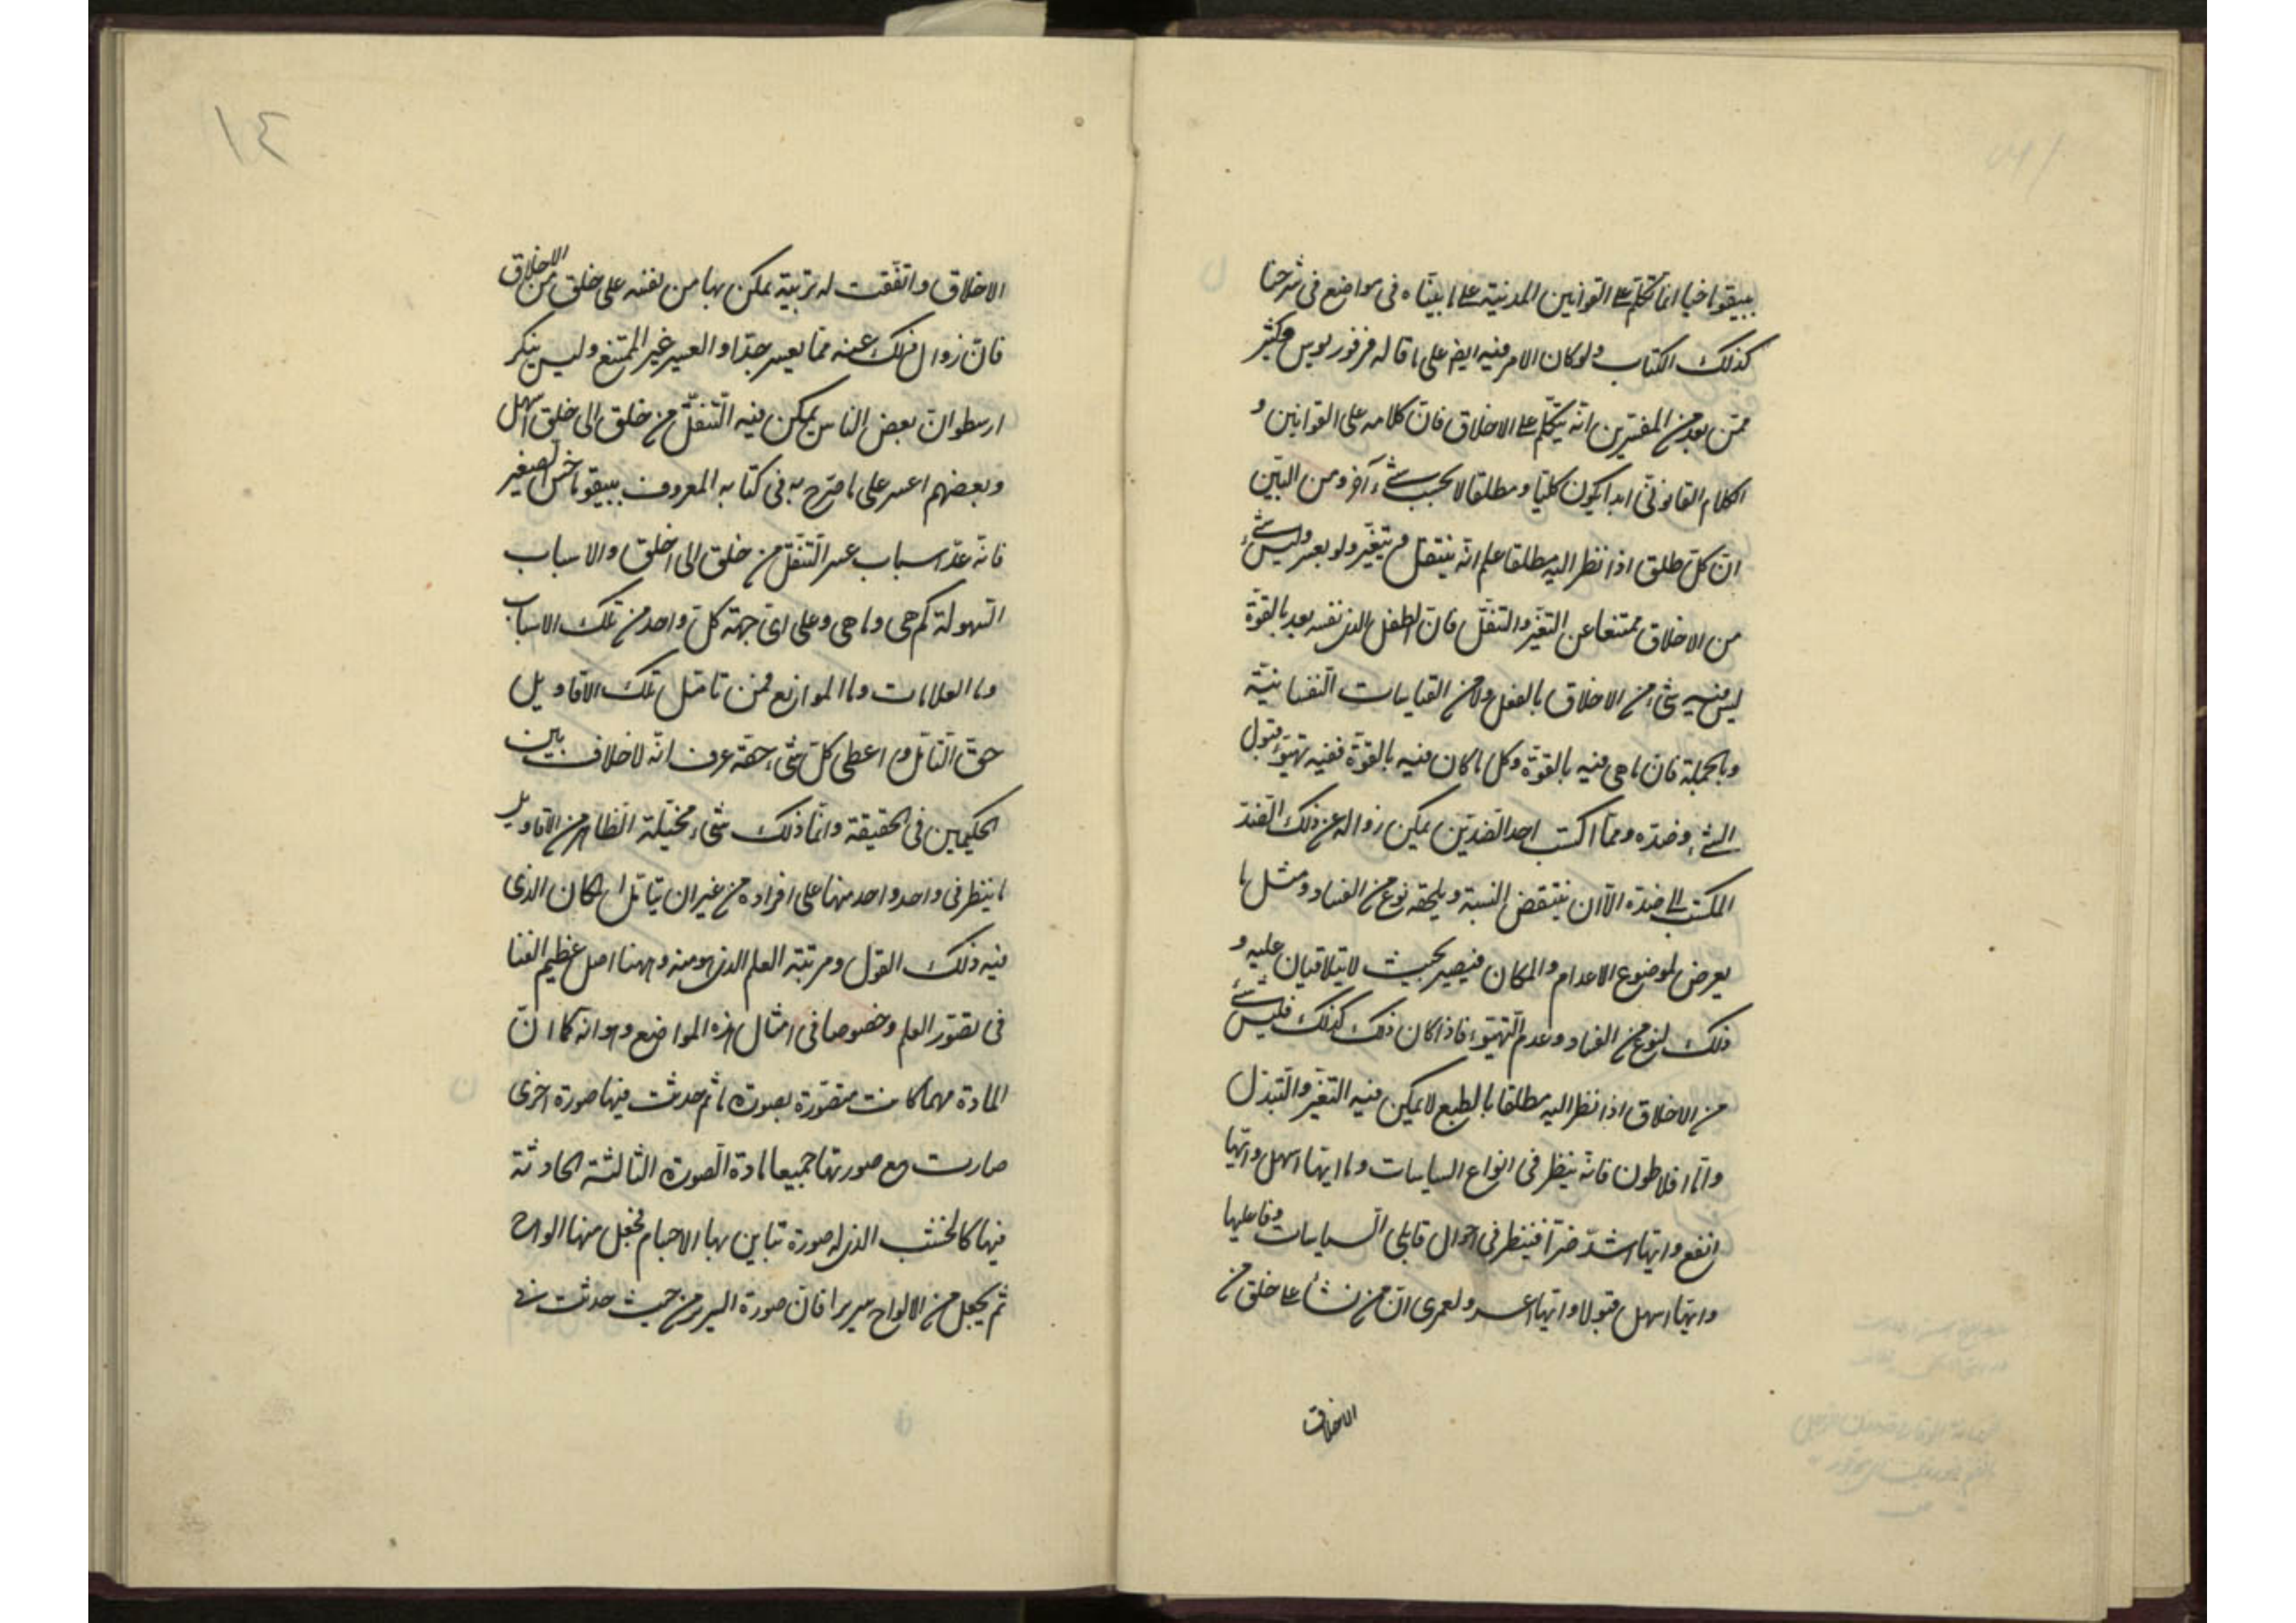 بنيقوماخيا انما يتكلم على القوانين المدنية على ما بيناه فى مواضع فى شرحنا
كذلك الكتاب ولو كان الامر فيه ايض على ما قاله فرفوريوس وكثير
ممن بعد من المفسرين انه يتكلم على الاخلاق فان كلامه على القوانين و
الكلام القانونى ابدا يكون كليا و مطلقا لا بحسب شىء آخر ومن البين
ان كل خلق اذا نظر اليه مطلقا علم انه ينتقل و يتغير ولو بعسر وليس شىء
من الاخلاق ممتنعا عن التغير والتنقل فان الطفل الذى نفسه بعد بالقوة
ليس فيه شىء من الاخلاق بالفعل ولا من القياسات النفسانية
وبالجملة فان ما هى فيه بالقوة وكل ما كان فيه بالقوة ففيه تهيؤ لقبول
الشىء وضده ومما اكتسب احد الضدين يمكن زواله عن ذلك الضد
المكتسب الى ضده الا ان ينتقض النسبة ويلحقه نوع من الفساد ومثل ما
يعرض لموضوع الاعدام والمكان فيصير بحيث لا يتلاقيان عليه و
ذلك لنوع من الفساد وعدم التهيؤ فاذا كان ذلك كذلك فليس شىء
من الاخلاق اذا نظر اليه مطلقا بالطبع لا يمكن فيه التغير والتبدل
واما افلاطون فانه ينظر فى انواع السياسات وما ايها اسهل وايها
انفع وايها اشد ضرا فينظر فى احوال قابلى السياسات وفاعليها
وايها اسهل قبولا وايها اعسر ولعمرى ان من نشأ على خلق من
الاخلاق
١٤
الاخلاق واتفقت له تربية يمكن بها من نفسه على خلق من الاخلاق
فان زوال ذلك عنه مما يعسر جدا والعسير غير الممتنع وليس ينكر
ارسطو ان بعض الناس يمكن فيه التنقل من خلق الى خلق اسهل
وبعضهم اعسر على ما صرح به فى كتابه المعروف ببنيقوماخس الصغير
فانه عد اسباب عسر التنقل من خلق الى خلق والاسباب
السهولة كم هى وما هى وعلى اى جهة كل واحد من تلك الاسباب
وما العلامات وما الموانع فمن تامل تلك الاقاويل
حق التامل و اعطى كل شىء حقه عرف انه لا خلاف بين
الحكيمين فى الحقيقة وانما ذلك شىء مخيلة الظاهر من الاقاويل
ما ينظر فى واحد واحد منها على افراده من غير ان يتامل المكان الذى
فيه ذلك القول ومرتبة العلم الذى هو منه وههنا اصل عظيم الغنا
فى تصور العلم وخصوصا فى امثال هذه المواضع وهو انه كما ان
المادة مهما كانت متصورة بصورة ما ثم حدثت فيها صورة اخرى
صارت مع صورتها جميعا مادة الصورة الثالثة الحادثة
فيها كالخشب الذى له صورة تباين بها الاجسام فجعل منها الواح
ثم يجعل من الالواح سريرا فان صورة السرير من حيث حدثت فى